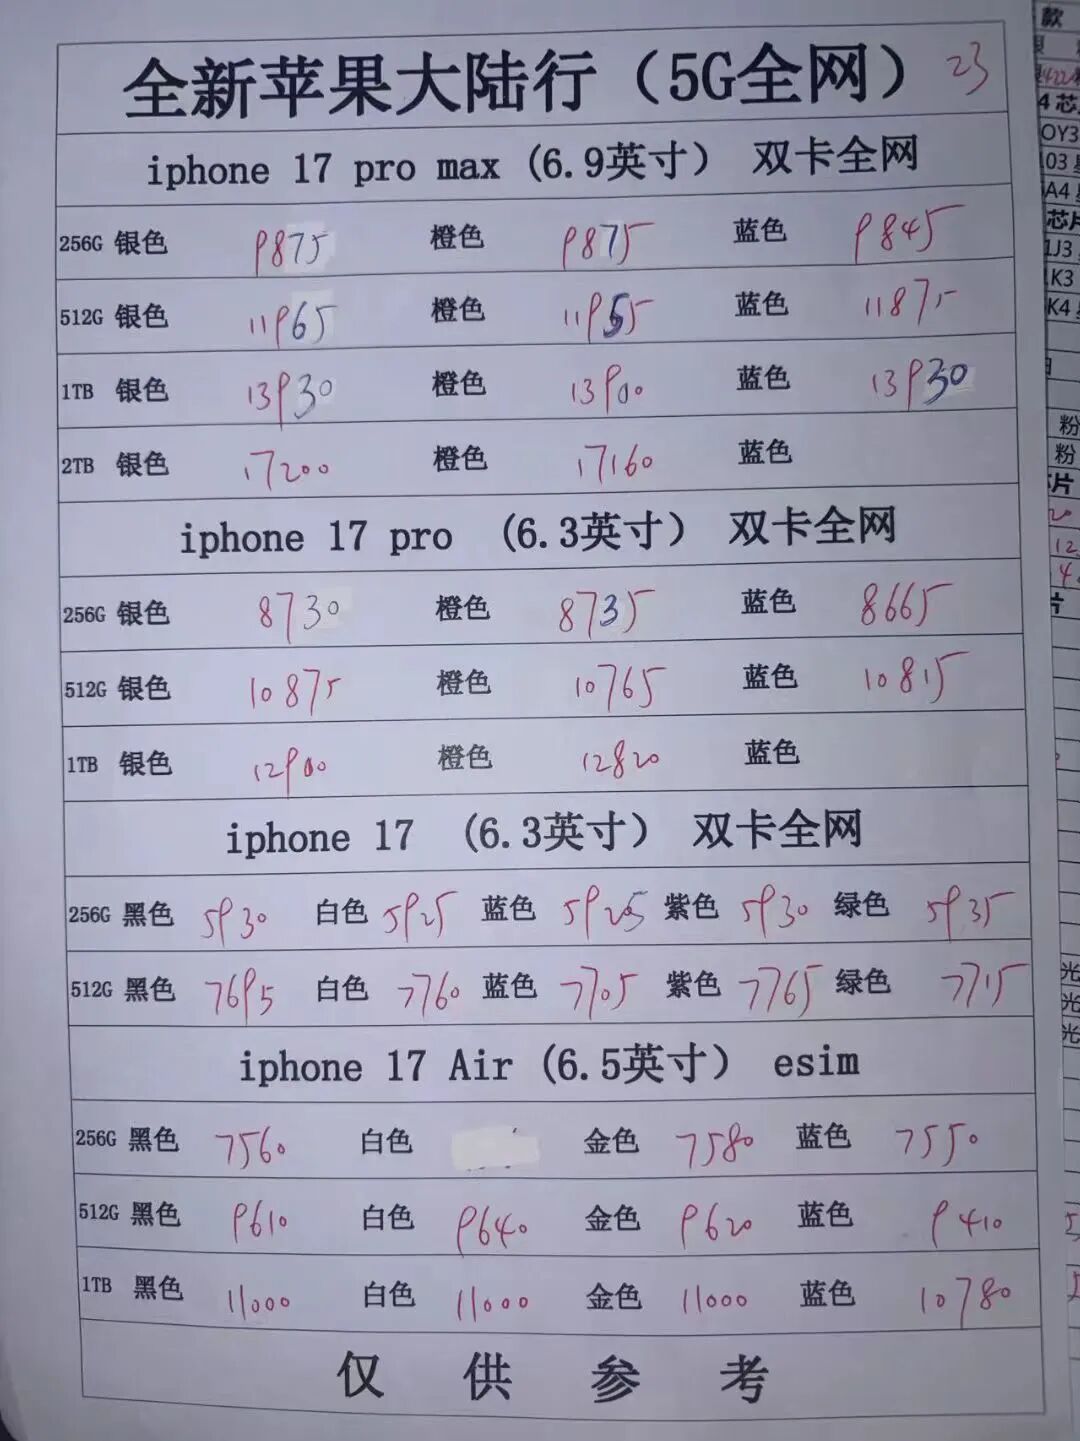 全新苹果大陆行（5G全网） 23
iphone 17 pro max (6.9英寸） 双卡全网
256G 银色 9875 橙色 9875 蓝色 9845
512G 银色 11965 橙色 11955 蓝色 11875
1TB 银色 13930 橙色 13900 蓝色 13930
2TB 银色 17200 橙色 17160 蓝色
iphone 17 pro （6.3英寸） 双卡全网
256G 银色 8730 橙色 8735 蓝色 8665
512G 银色 10875 橙色 10765 蓝色 10815
1TB 银色 12900 橙色 12820 蓝色
iphone 17 （6.3英寸） 双卡全网
256G 黑色 5930 白色 5925 蓝色 5925 紫色 5930 绿色 5935
512G 黑色 7695 白色 7760 蓝色 7705 紫色 7765 绿色 7715
iphone 17 Air (6.5英寸） esim
256G 黑色 7560 白色 金色 7580 蓝色 7550
512G 黑色 9610 白色 9640 金色 9620 蓝色 9410
1TB 黑色 11000 白色 11000 金色 11000 蓝色 10780
仅供参考
款
4芯
OY3
103
A4
芯片
1J3
1K3
K4
粉
粉
片
片
光
光
光